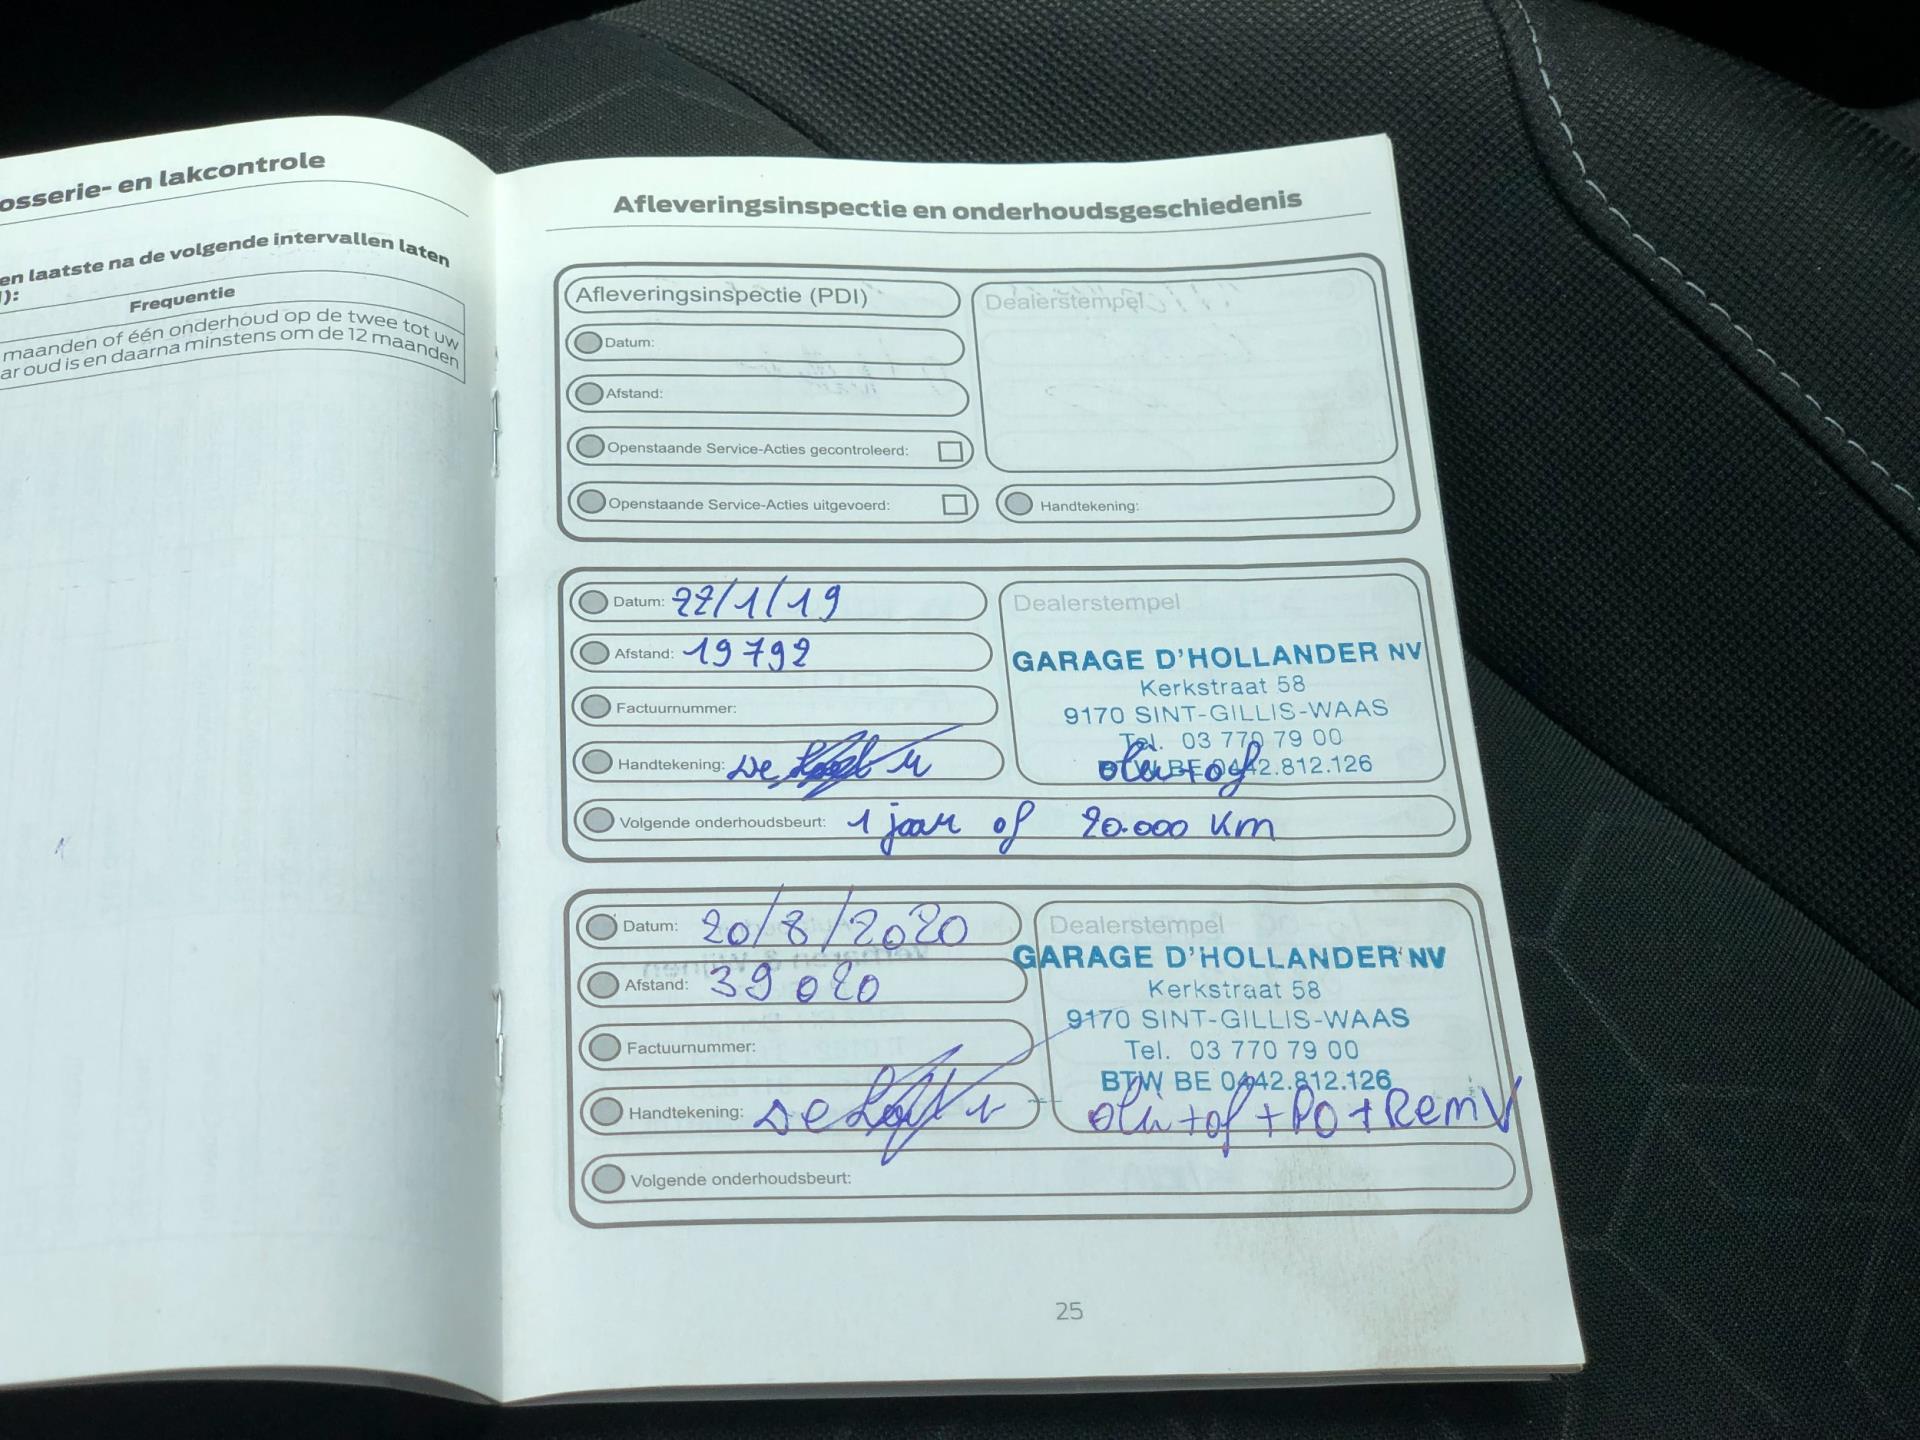 osserie- en lakcontrole
en laatste na de volgende intervallen laten
):
Frequentie
maanden of één onderhoud op de twee tot uw
ar oud is en daarna minstens om de 12 maanden
Afleveringsinspectie en onderhoudsgeschiedenis
Afleveringsinspectie (PDI)
Dealerstempel
Datum:
Afstand:
Openstaande Service-Acties gecontroleerd:
Openstaande Service-Acties uitgevoerd:
Handtekening:
Datum: 22/1/19
Dealerstempel
Afstand: 19792
GARAGE D'HOLLANDER NV
Kerkstraat 58
9170 SINT-GILLIS-WAAS
Tel. 03 770 79 00
BTW BE 0442.812.126
Factuurnummer:
Handtekening: De
olie + of
Volgende onderhoudsbeurt: 1 jaar of 20.000 Km
Datum: 20/8/2020
Dealerstempel
Afstand: 39020
GARAGE D'HOLLANDER NV
Kerkstraat 58
9170 SINT-GILLIS-WAAS
Tel. 03 770 79 00
BTW BE 0442.812.126
Factuurnummer:
Handtekening: De
olie + of + PO + RemV
Volgende onderhoudsbeurt:
25